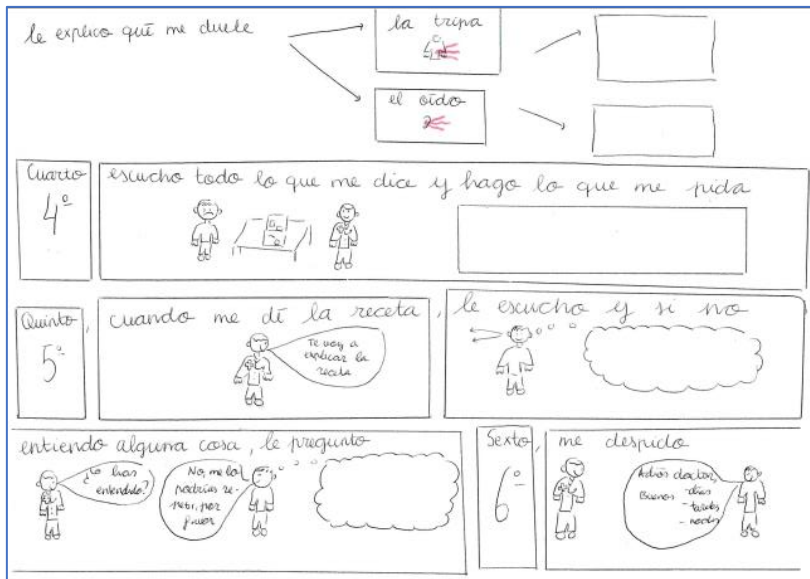 le explico qué me duele
la tripa
el oído
Cuarto
4º
escucho todo lo que me dice y hago lo que me pida
Quinto,
5º
cuando me dé la receta,
Te voy a
explicar la
receta
le escucho y si no
entiendo alguna cosa, le pregunto
¿Lo has
entendido?
No, me lo
podrías re-
petir, por
favor
Sexto,
6º
me despido
Adiós doctor,
Buenos - días
- tardes
- noches